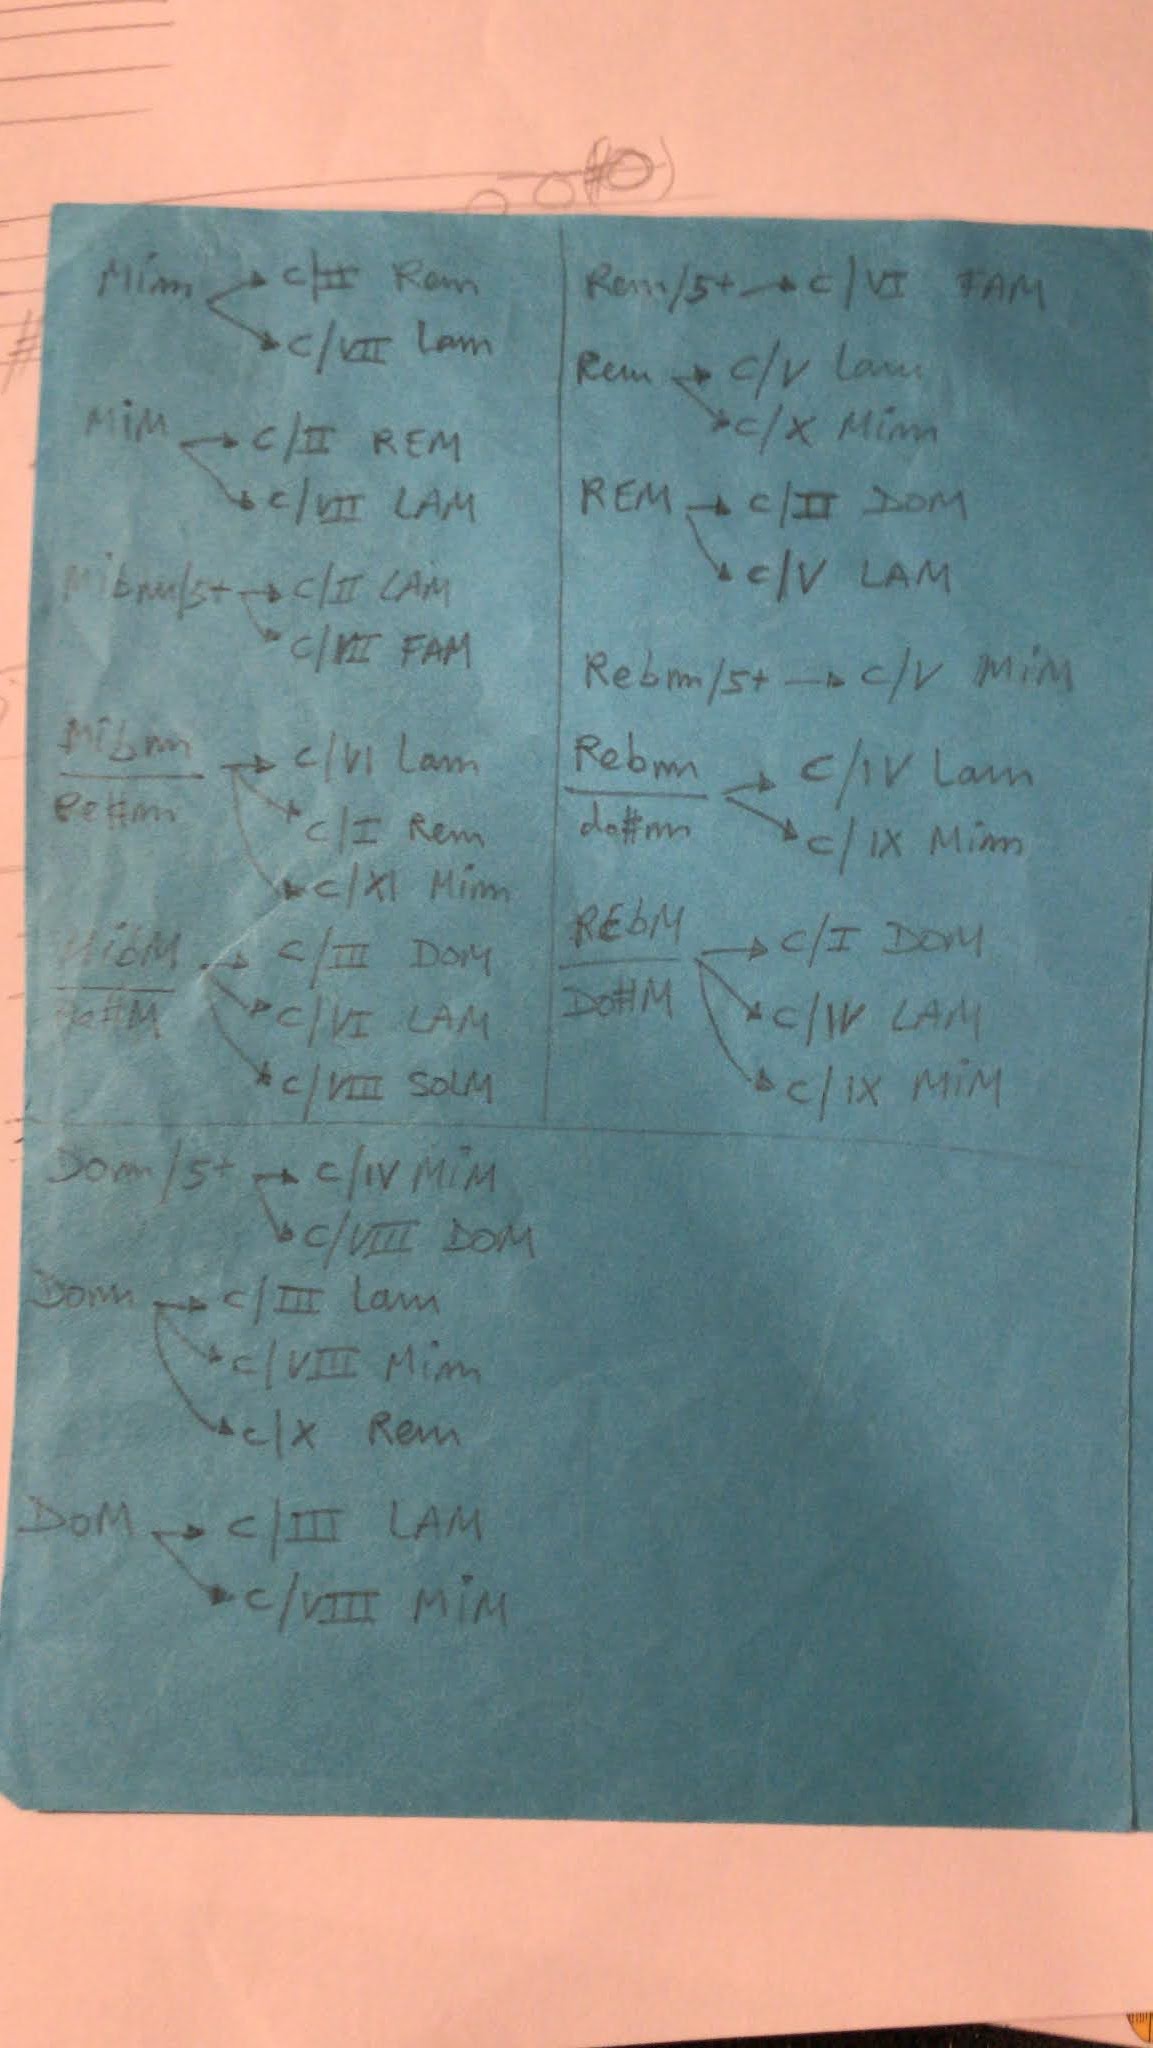 Mim → c/II Rem
→ c/VII Lam
MiM → c/II REM
→ c/VII LAM
Mibm/5+ → c/II LAM
→ c/VII FAM
Mibm
Re#m
→ c/VI Lam
→ c/I Rem
→ c/XI Mim
MibM
Re#M
→ c/III DOM
→ c/VI LAM
→ c/VIII SOLM
Rem/5+ → c/VI FAM
Rem → c/V Lam
→ c/X Mim
REM → c/II DOM
→ c/V LAM
Rebm/5+ → c/V MiM
Rebm
do#m
→ c/IV Lam
→ c/IX Mim
REbM
Do#M
→ c/I DOM
→ c/IV LAM
→ c/IX MiM
Dom/5+ → c/IV MiM
→ c/VIII DOM
Dom → c/III Lam
→ c/VIII Mim
→ c/X Rem
DoM → c/III LAM
→ c/VIII MiM